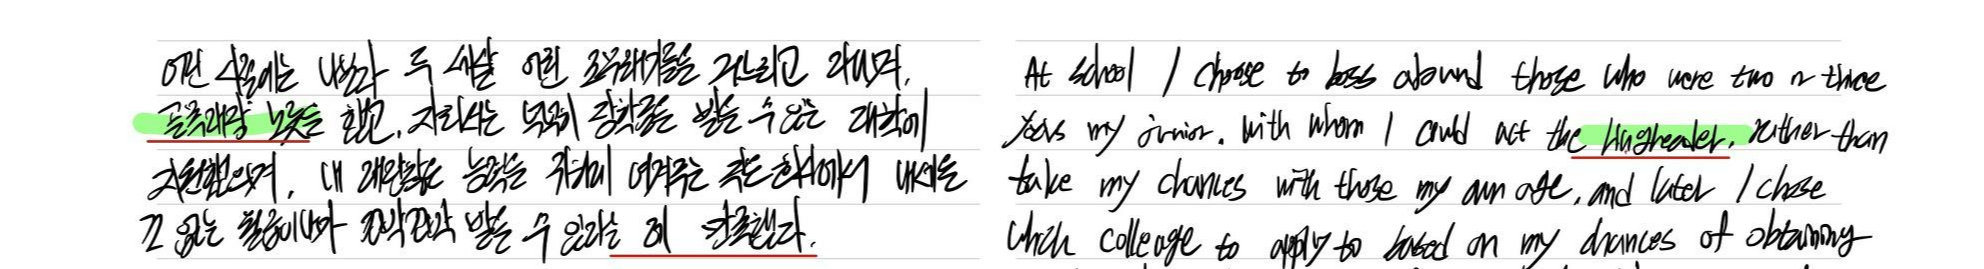 어린 시절에는 나보다 두 세살 어린 조무래기들을 거느리고 다니며,
골목대장 노릇을 했고, 자라서는 넉넉히 장학금을 받을 수 있는 대학에
지원했으며, 내 재능을 귀하게 여겨주는 작은 회사에서
없는 월급이나마 따박따박 받을 수 있다는 데 만족했다.
At school I choose to boss around those who were two or three
years my junior. With whom I could act the ringleader, rather than
take my chances with those my own age, and later I chose
which colleage to apply to based on my chances of obtaining